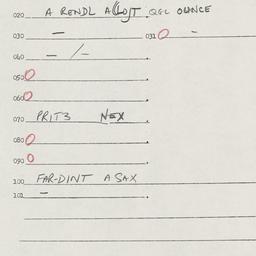 020 A RENDL ALLOJT QGL OUNCE
030 — 031 0 -
040 - /-
050 0
060 0
070 PRIT3 NEX
080 0
090 0
100 FAR-DINT A SAX
101 -